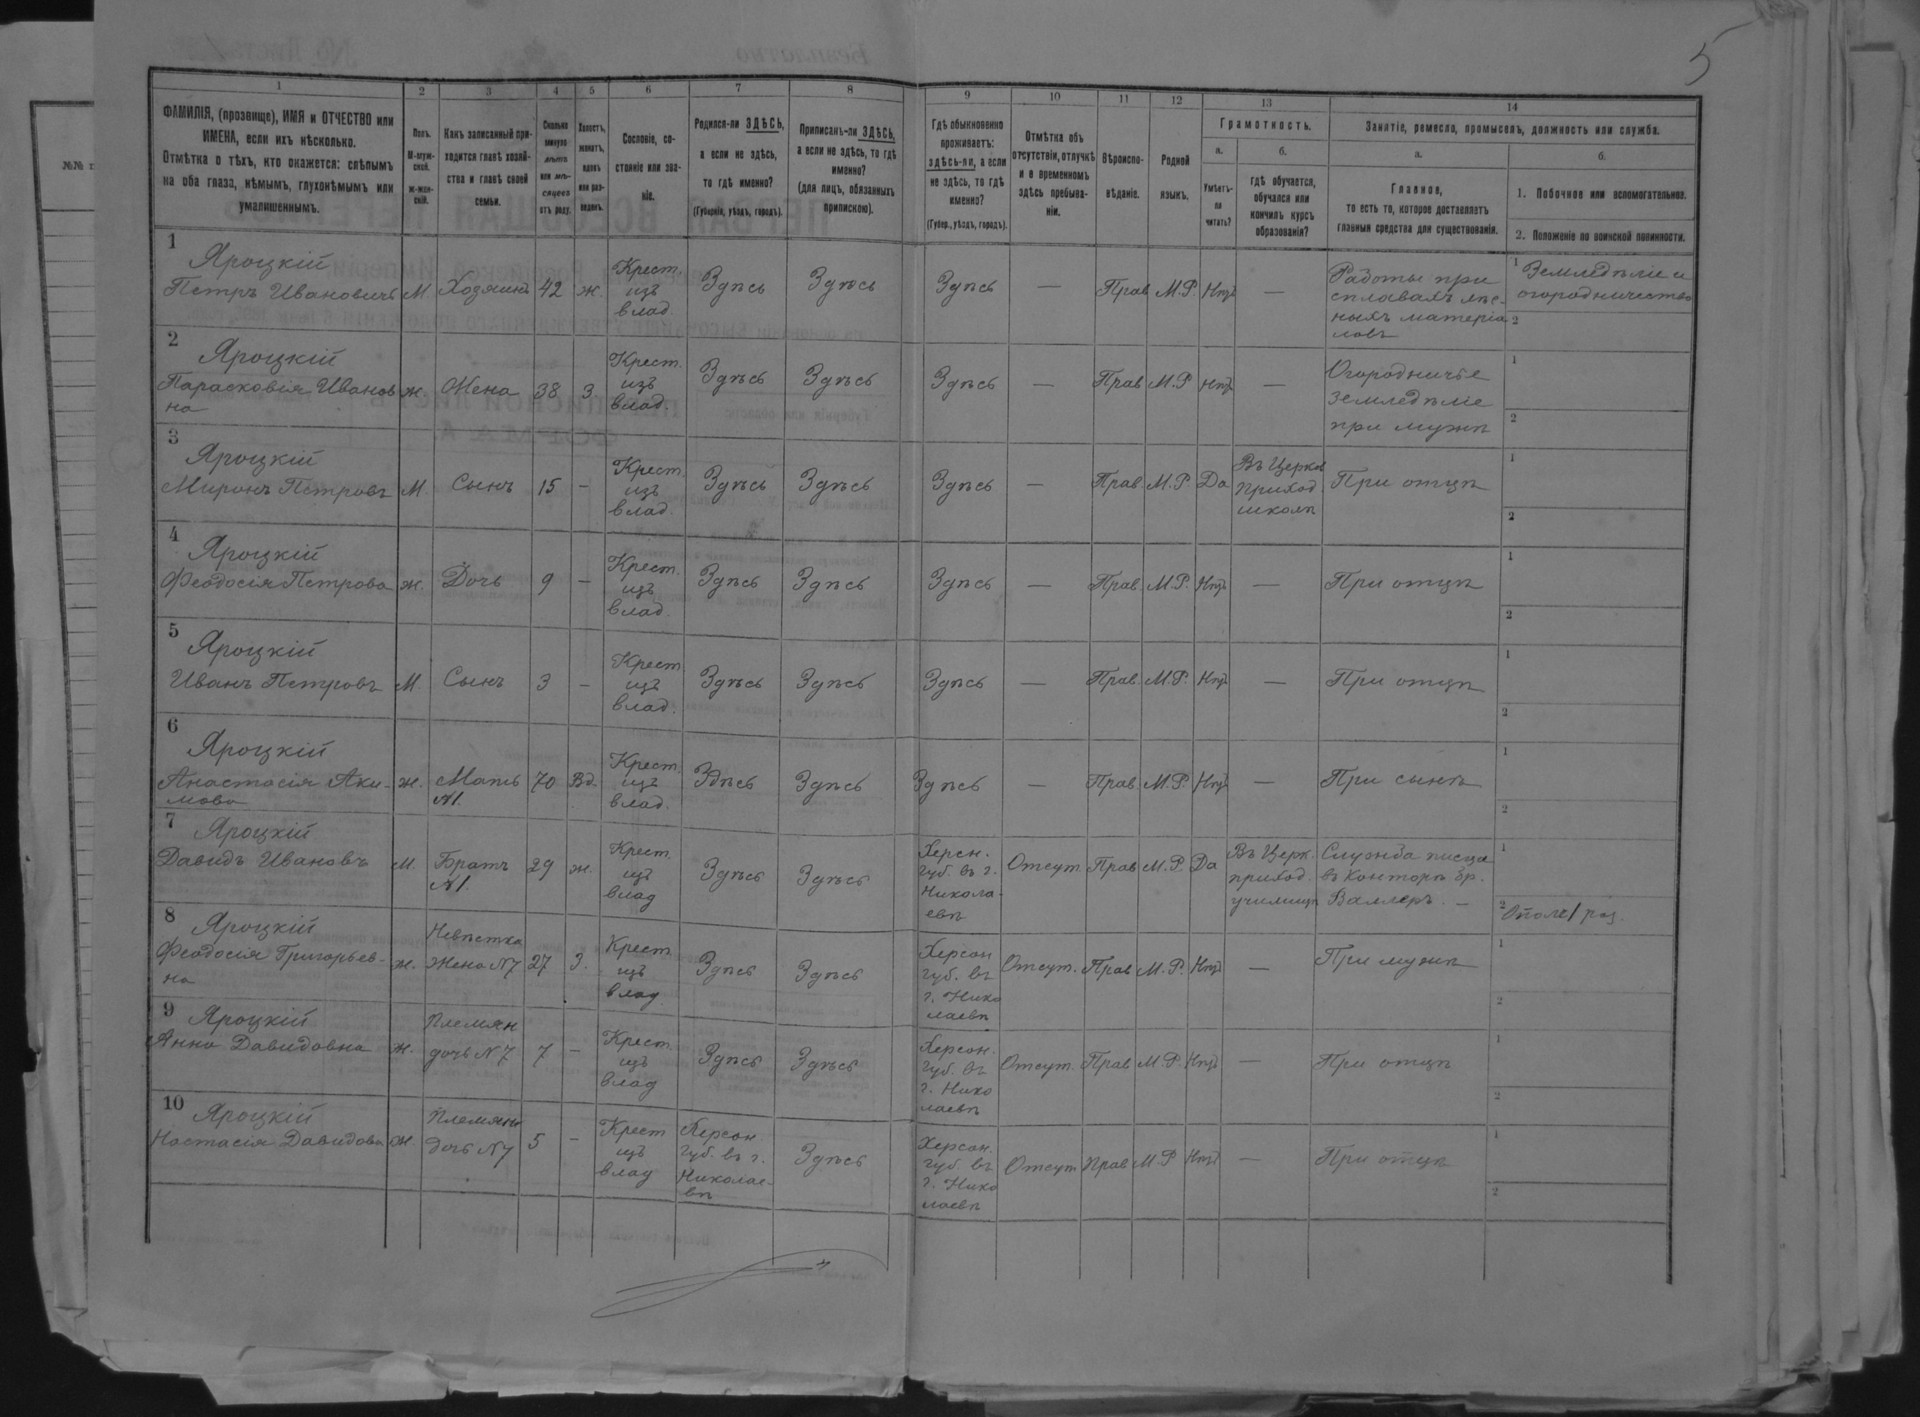 5
1 2 3 4 5 6 7 8 9 10 11 12 13 14
ФАМИЛІЯ, (прозвище), ИМЯ и ОТЧЕСТВО или
ИМЕНА, если ихъ нѣсколько.
Отмѣтка о тѣхъ, кто окажется: слѣпымъ
на оба глаза, нѣмымъ, глухонѣмымъ или
умалишеннымъ.
Полъ.
М-муж-
ской.
ж-жен-
скій.
Какъ записанный при-
ходится главѣ хозяй-
ства и главѣ своей
семьи.
Сколько
минуло
лѣтъ
или мѣ-
сяцевъ
отъ роду.
Холостъ,
женатъ,
вдовъ
или раз-
веденъ.
Сословіе, со-
стояніе или зва-
ніе.
Родился-ли ЗДѢСЬ,
а если не здѣсь,
то гдѣ именно?
(Губернія, уѣздъ, городъ).
Приписанъ-ли ЗДѢСЬ,
а если не здѣсь, то гдѣ
именно?
(для лицъ, обязанныхъ
припискою).
Гдѣ обыкновенно
проживаетъ:
здѣсь-ли, а если
не здѣсь, то гдѣ
именно?
(Губер., уѣздъ, городъ).
Отмѣтка объ
отсутствіи, отлучкѣ
и о временномъ
здѣсь пребыва-
ніи.
Вѣроиспо-
вѣданіе.
Родной
языкъ.
Грамотность.
а.
Умѣетъ-
ли
читать?
б.
гдѣ обучается,
обучался или
кончилъ курсъ
образованія?
Занятіе, ремесло, промыселъ, должность или служба.
а.
Главное,
то есть то, которое доставляетъ
главныя средства для существованія.
б.
1. Побочное или вспомогательное.
2. Положеніе по воинской повинности.
1
Яроцкій
Петръ Ивановичъ М. Хозяинъ 42 ж.
Крест.
изъ
влад.
Здѣсь Здѣсь Здѣсь — Прав. М.Р. Нѣтъ —
Работы при
сплавахъ лѣс-
ныхъ матеріа
ловъ
1 Земледѣліе и
огородничество
2
2
Яроцкій
Парасковія Иванов
на
ж. Жена 38 З
Крест.
изъ
влад.
Здѣсь Здѣсь Здѣсь — Прав М.Р Нѣтъ —
Огородничье
земледѣліе
при мужѣ
1
2
3
Яроцкій
Миронъ Петровъ М. Сынъ 15 -
Крест.
изъ
влад.
Здѣсь Здѣсь Здѣсь — Прав М.Р. Да
Въ Церков
приход.
школѣ
При отцѣ
1
2
4
Яроцкій
Феодосія Петрова ж. Дочь 9 -
Крест.
изъ
влад.
Здѣсь Здѣсь Здѣсь — Прав. М.Р. Нѣтъ — При отцѣ
1
2
5
Яроцкій
Иванъ Петровъ М. Сынъ 3 -
Крест
изъ
влад.
Здѣсь Здѣсь Здѣсь — Прав. М.Р. Нѣтъ — При отцѣ
1
2
6
Яроцкій
Анастасія Аки-
мова
ж. Мать
N1.
70 Вд.
Крест.
изъ
влад.
Здѣсь Здѣсь Здѣсь — Прав. М.Р. Нѣтъ — При сынѣ
1
2
7
Яроцкій
Давидъ Ивановъ М. Братъ
N1.
29 ж.
Крест.
изъ
влад
Здѣсь Здѣсь
Херсн.
губ. въ г.
Никола-
евѣ
Отсут. Прав М.Р. Да
Въ Церк.
приход.
училищѣ
Служба писца
въ Конторѣ бр.
Валлеръ. —
1
2
8
Яроцкій
Феодосія Григорьев-
на
ж.
Невѣстка
Жена N7
27 З.
Крест
изъ
влад
Здѣсь Здѣсь
Херсон
губ. въ
г. Нико
лаевѣ
Отсут. Прав М.Р. Нѣтъ — При мужѣ
1
2
9
Яроцкій
Анна Давидовна ж.
Племян
дочь N7
7 -
Крест
изъ
влад
Здѣсь Здѣсь
Херсон.
губ. въ
г. Нико
лаевѣ
Отсут. Прав М.Р. Нѣтъ — При отцѣ
1
2
10
Яроцкій
Настасія Давидова ж.
Племян
дочь N7
5 -
Крест
изъ
влад
Херсон
губ. въ г.
Николае-
вѣ
Здѣсь
Херсон.
губ. въ
г. Нико
лаевѣ
Отсут Прав М.Р Нѣтъ — При отцѣ
1
2